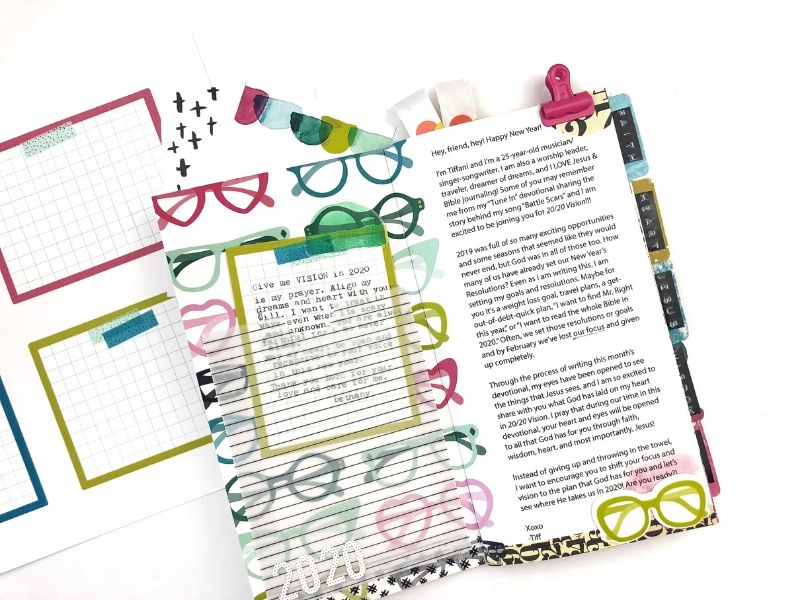 Give me VISION in 2020
is my prayer. Align my
dreams and heart with your
will. I want to trust in
even when its scary
and unknown. You are always
faithful
may my heart be open and
receptive to your voice
in this new year.
Thank you Lord for your
love and care for me.
bethany
2020
Hey, friend, hey! Happy New Year!
I'm Tiffani and I'm a 25-year-old musician/
singer-songwriter. I am also a worship leader,
traveler, dreamer of dreams, and I LOVE Jesus &
Bible Journaling! Some of you may remember
me from my "Tune In" devotional sharing the
story behind my song "Battle Scars" and I am
excited to be joining you for 20/20 Vision!!!
2019 was full of so many exciting opportunities
and some seasons that seemed like they would
never end, but God was in all of those too. How
many of us have already set our New Year's
Resolutions? Even as I am writing this, I am
setting my goals and resolutions. Maybe for
you it's a weight loss goal, travel plans, a get-
out-of-debt-quick plan, "I want to find Mr. Right
this year," or "I want to read the whole Bible in
2020." Often, we set those resolutions or goals
and by February we've lost our focus and given
up completely.
Through the process of writing this month's
devotional, my eyes have been opened to see
the things that Jesus sees, and I am so excited to
share with you what God has laid on my heart
in 20/20 Vision. I pray that during our time in this
devotional, your heart and eyes will be opened
to all that God has for you through faith,
wisdom, heart, and most importantly, Jesus!
Instead of giving up and throwing in the towel,
I want to encourage you to shift your focus and
vision to the plan that God has for you and let's
see where He takes us in 2020! Are you ready?!
Xoxo
-Tiff
FAITH
HEART
JESUS